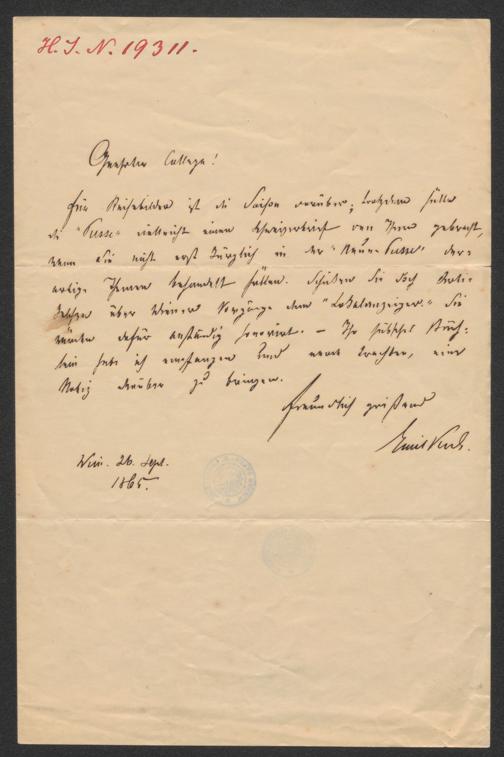 H. I. N. 19311.
Geehrter College!
Für Reisebilder ist die Saison vorüber; trotzdem hätte
die "Presse" vielleicht einen Schweizerbrief von Ihnen gebracht,
wenn Sie nicht erst kürzlich in der "Neuen Presse" der-
artige Themen behandelt hätten. Schicken Sie doch Notiz-
über Wiener Vorgänge dem "Lokalanzeiger." Sie
würden dafür anständig honorirt. – Ihr hübsches Büch-
lein habe ich empfangen und werde trachten, eine
Notiz darüber zu bringen.
Freundlich grüßend
Emil
Wien. 26. Sept.
1865.